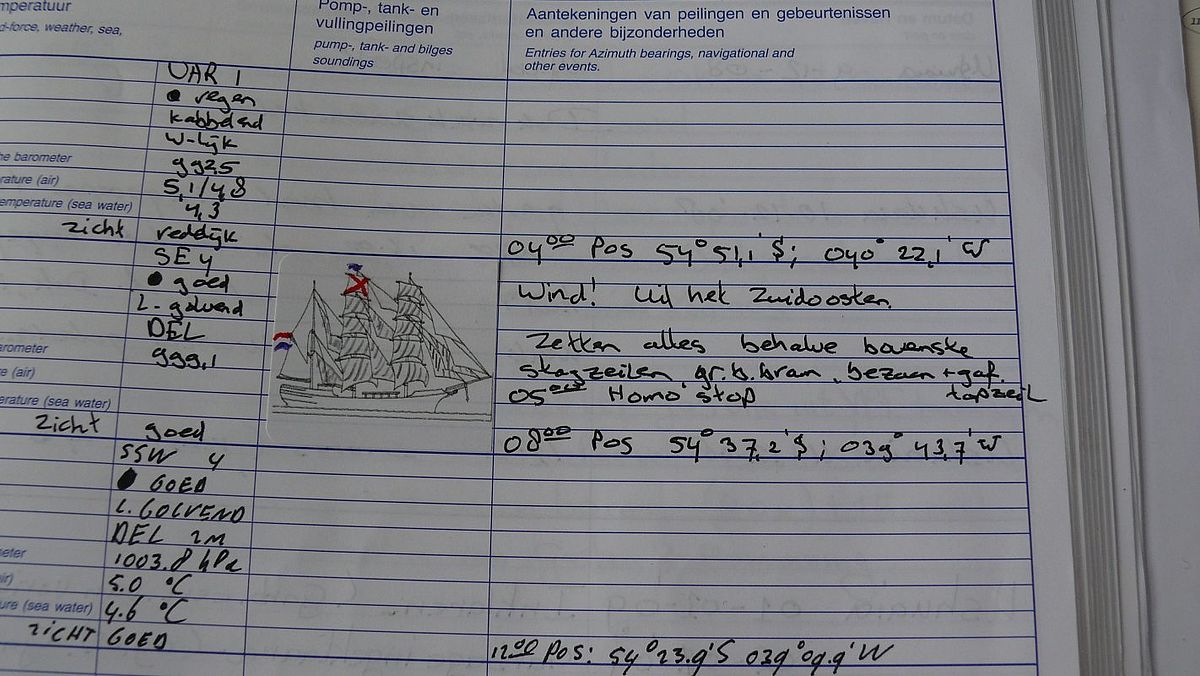 mperatuur
d-force, weather, sea,
Pomp-, tank- en
vullingpeilingen
pump-, tank- and bilges
soundings
Aantekeningen van peilingen en gebeurtenissen
en andere bijzonderheden
Entries for Azimuth bearings, navigational and
other events.
VAR 1
regen
kabbelend
W-lijk
he barometer 992,5
rature (air) 5,1/4,8
emperature (sea water) 4,3
zicht reddijk
04⁰⁰ Pos 54° 51,1' S; 040° 22,1' W
SE 4
goed
Wind! Uit het Zuidoosten.
L. golvend
DEL
Zetten alles behalve bovenste
arometer 999,1
stagzeilen, gr.b.bram, bezaan + gaf.
topzeil
e (air)
erature (sea water)
05⁰⁰ Homo stop
zicht goed
08⁰⁰ Pos 54° 37,2' S; 039° 43,7' W
SSW 4
GOED
L. GOLVEND
DEL 2M
meter 1003.8 hPa
air) 5.0 °C
ure (sea water) 4.6 °C
ZICHT GOED
12⁰⁰ POS: 54° 23.9' S 039° 09.9' W